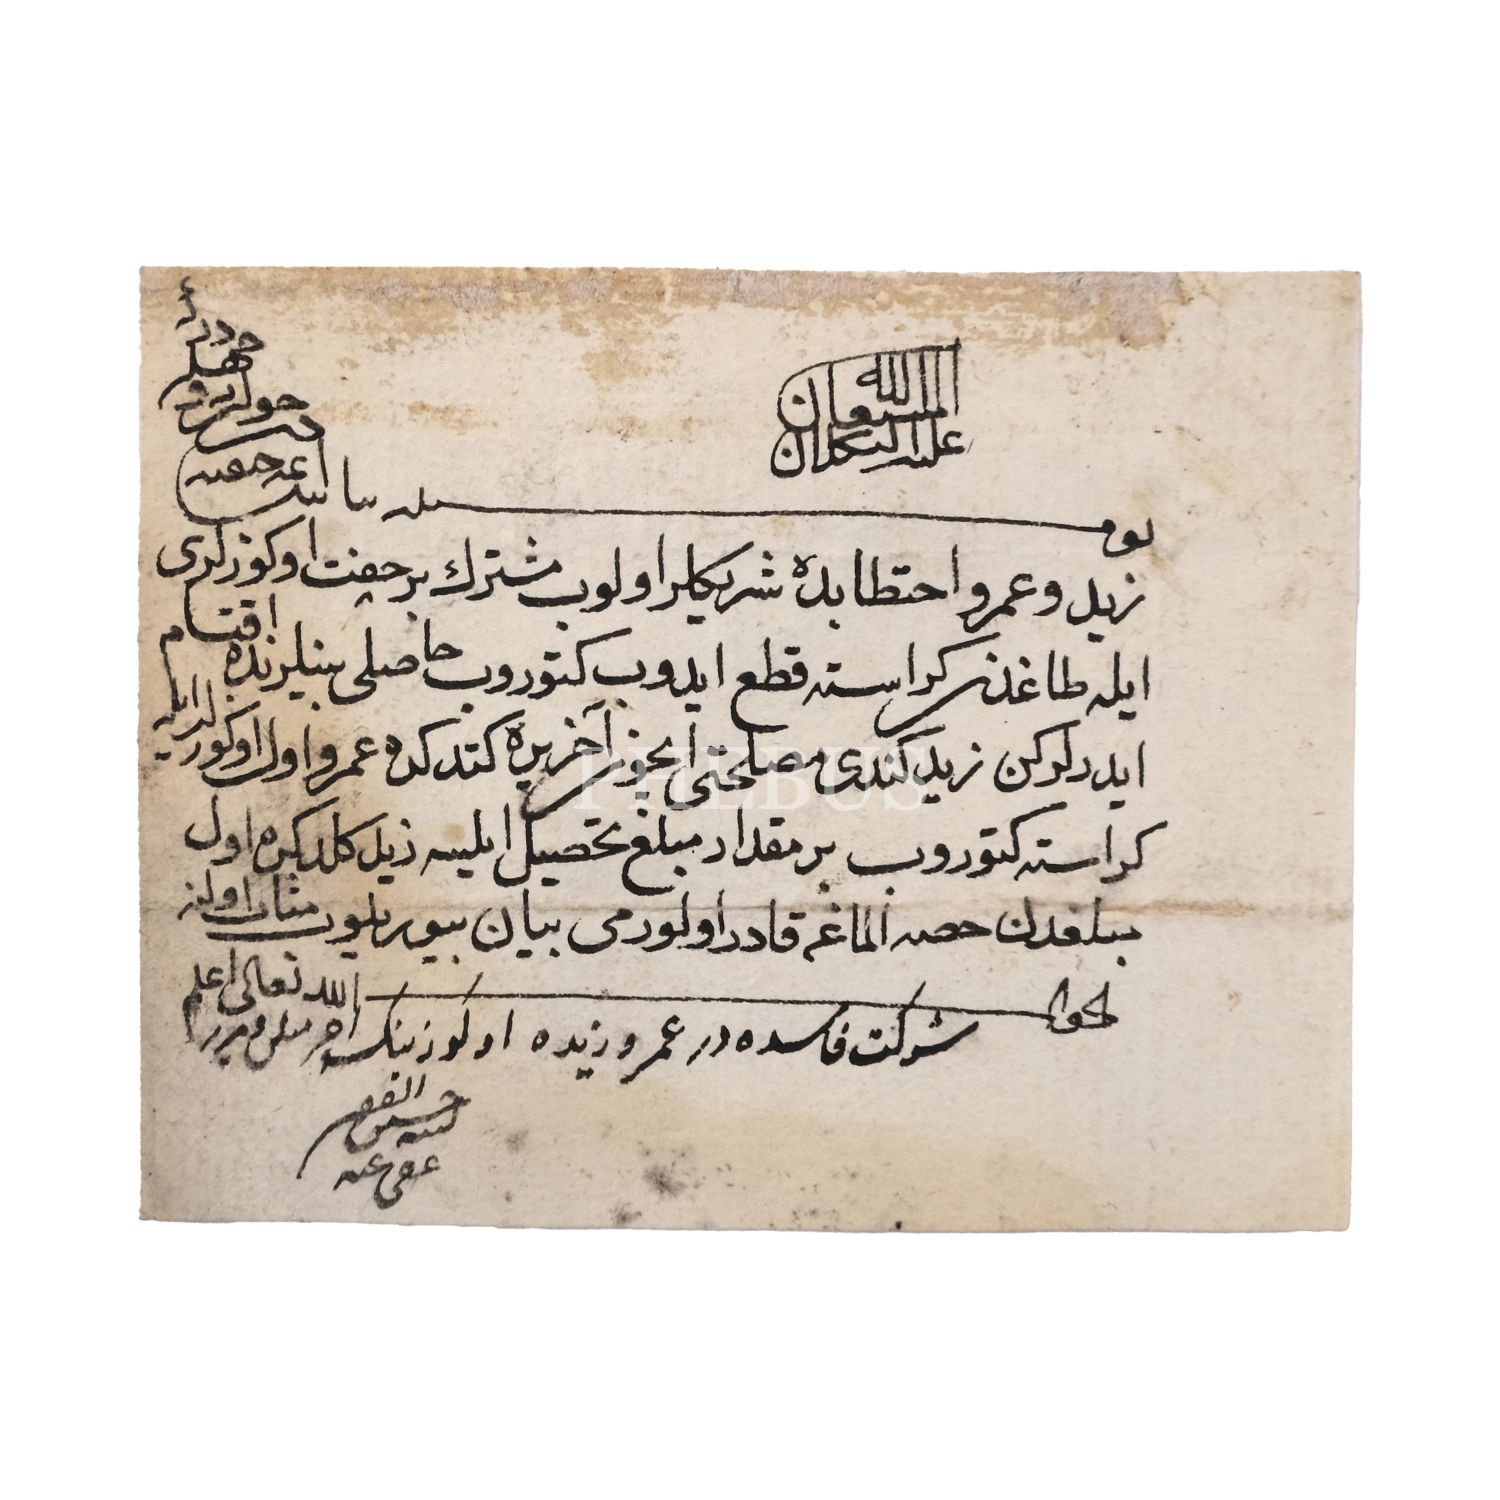 الله المستعان
عليه التكلان
بو مسئله بیاننده ائمهٔ حنفیه‌دن جواب نه وجهله در
زید و عمرو احتطابده شریکلر اولوب مشترک بر جفت اوکوزلری
ایله طاغدن کراسته قطع ایدوب کتوروب حاصلی بینلرنده اقتسام
ایدرلرکن زید کندی مصلحتی ایچون آخر یره کتدکده عمرو اول اوکوزلر ایله
کراسته کتوروب بر مقدار مبلغ تحصیل ایلیسه زید کلدکده اول
مبلغدن حصه آلماغه قادر اولورمی بیان بیوریلوب مثاب اولنه
الجواب الله تعالی اعلم
شرکت فاسده در عمرو زیده اوکوزینک اجر مثلن ویرر
کتبه الفقیر حسین
عفی عنه
PHEBUS